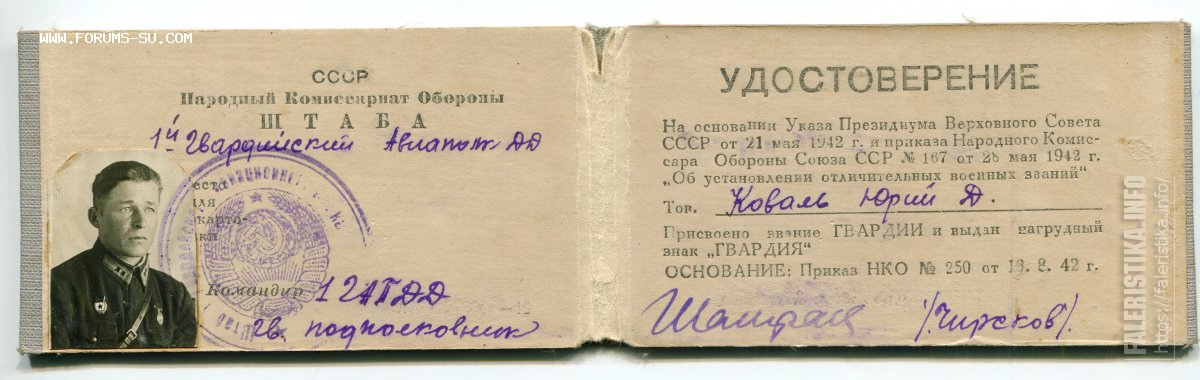 WWW.FORUMS-SU.COM
СССР
Народный Комиссариат Обороны
ШТАБА
1й Гвардейский Авиаполк ДД
места
для
карто-
ки
Командир 1 ГАПДД
гв. подполковник
УДОСТОВЕРЕНИЕ
На основании Указа Президиума Верховного Совета
СССР от 21 мая 1942 г. и приказа Народного Комис-
сара Обороны Союза ССР № 167 от 28 мая 1942 г.
"Об установлении отличительных военных званий"
Тов. Коваль Юрий Д.
Присвоено звание ГВАРДИИ и выдан нагрудный
знак „ГВАРДИЯ"
ОСНОВАНИЕ: Приказ НКО № 250 от 18.8.42 г.
FALERISTIKA.INFO
https://faleristika.info/